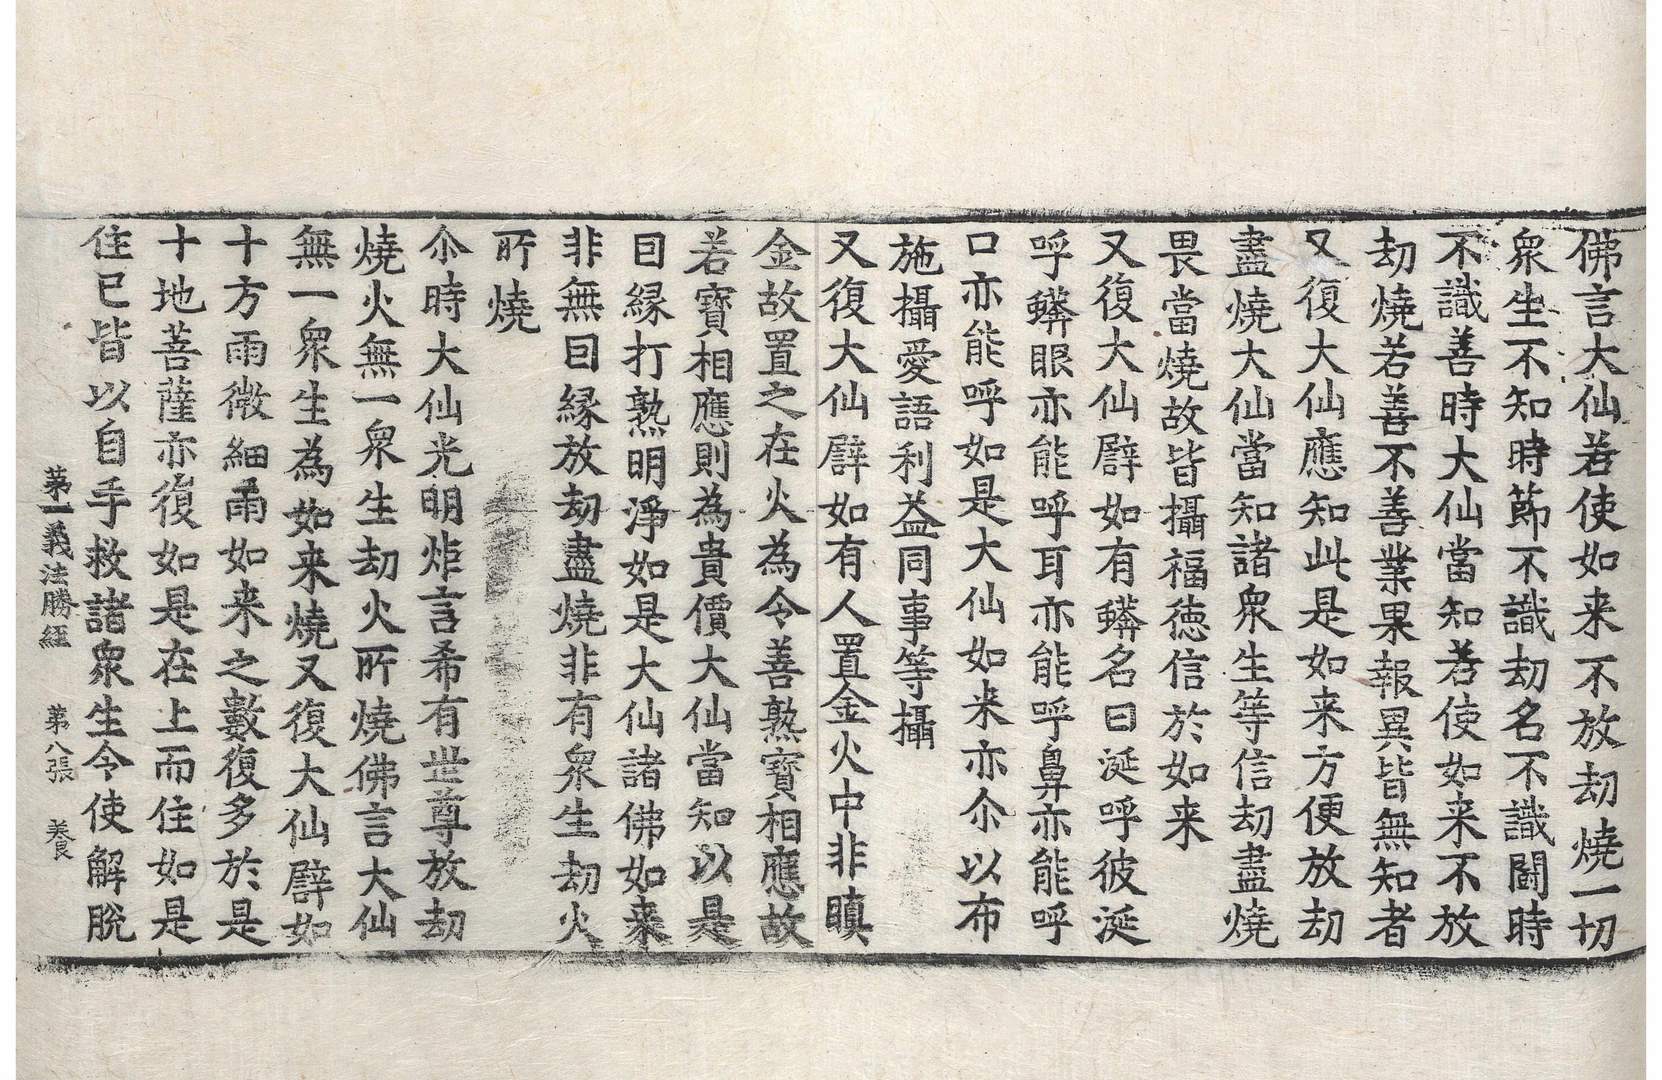 佛言大仙若使如来不放劫燒一切
衆生不知時節不識劫名不識闘時
不識善時大仙當知若使如来不放
劫燒若善不善業果報異皆無知者
又復大仙應知此是如来方便放劫
盡燒大仙當知諸衆生等信劫盡燒
畏當燒故皆攝福徳信於如来
又復大仙譬如有蠎名曰涎呼彼涎
呼蠎眼亦能呼耳亦能呼鼻亦能呼
口亦能呼如是大仙如来亦尒以布
施攝愛語利益同事等攝
又復大仙譬如有人置金火中非瞋
金故置之在火為令善熟寶相應故
若寶相應則為貴價大仙當知以是
曰縁打熟明淨如是大仙諸佛如来
非無曰縁放劫盡燒非有衆生劫火
所燒
尒時大仙光明炬言希有世尊放劫
燒火無一衆生劫火所燒佛言大仙
無一衆生為如来燒又復大仙譬如
十方雨微細雨如来之數復多於是
十地菩薩亦復如是在上而住如是
住已皆以自手救諸衆生令使解脫
苐一義法勝經 苐八張 養